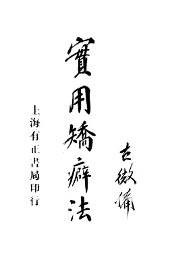 實用矯癖法
上海有正書局印行